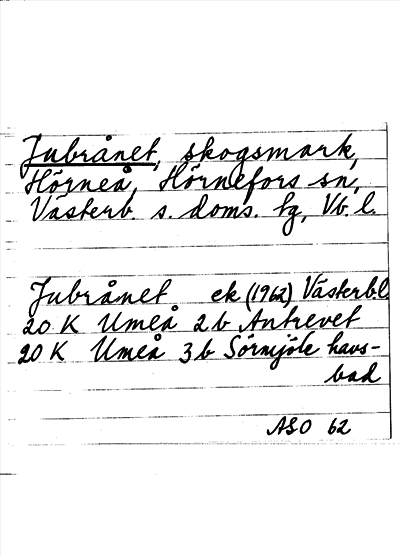 Jubrånet, skogsmark,
Hörneå, Hörnefors sn,
Västerb. s. doms. tg, Vb. l.
Jubrånet ek (1962) Västerb.l
20 K Umeå 2b Antrevet
20 K Umeå 3b Sörmjöle havs-
bad
ASO 62